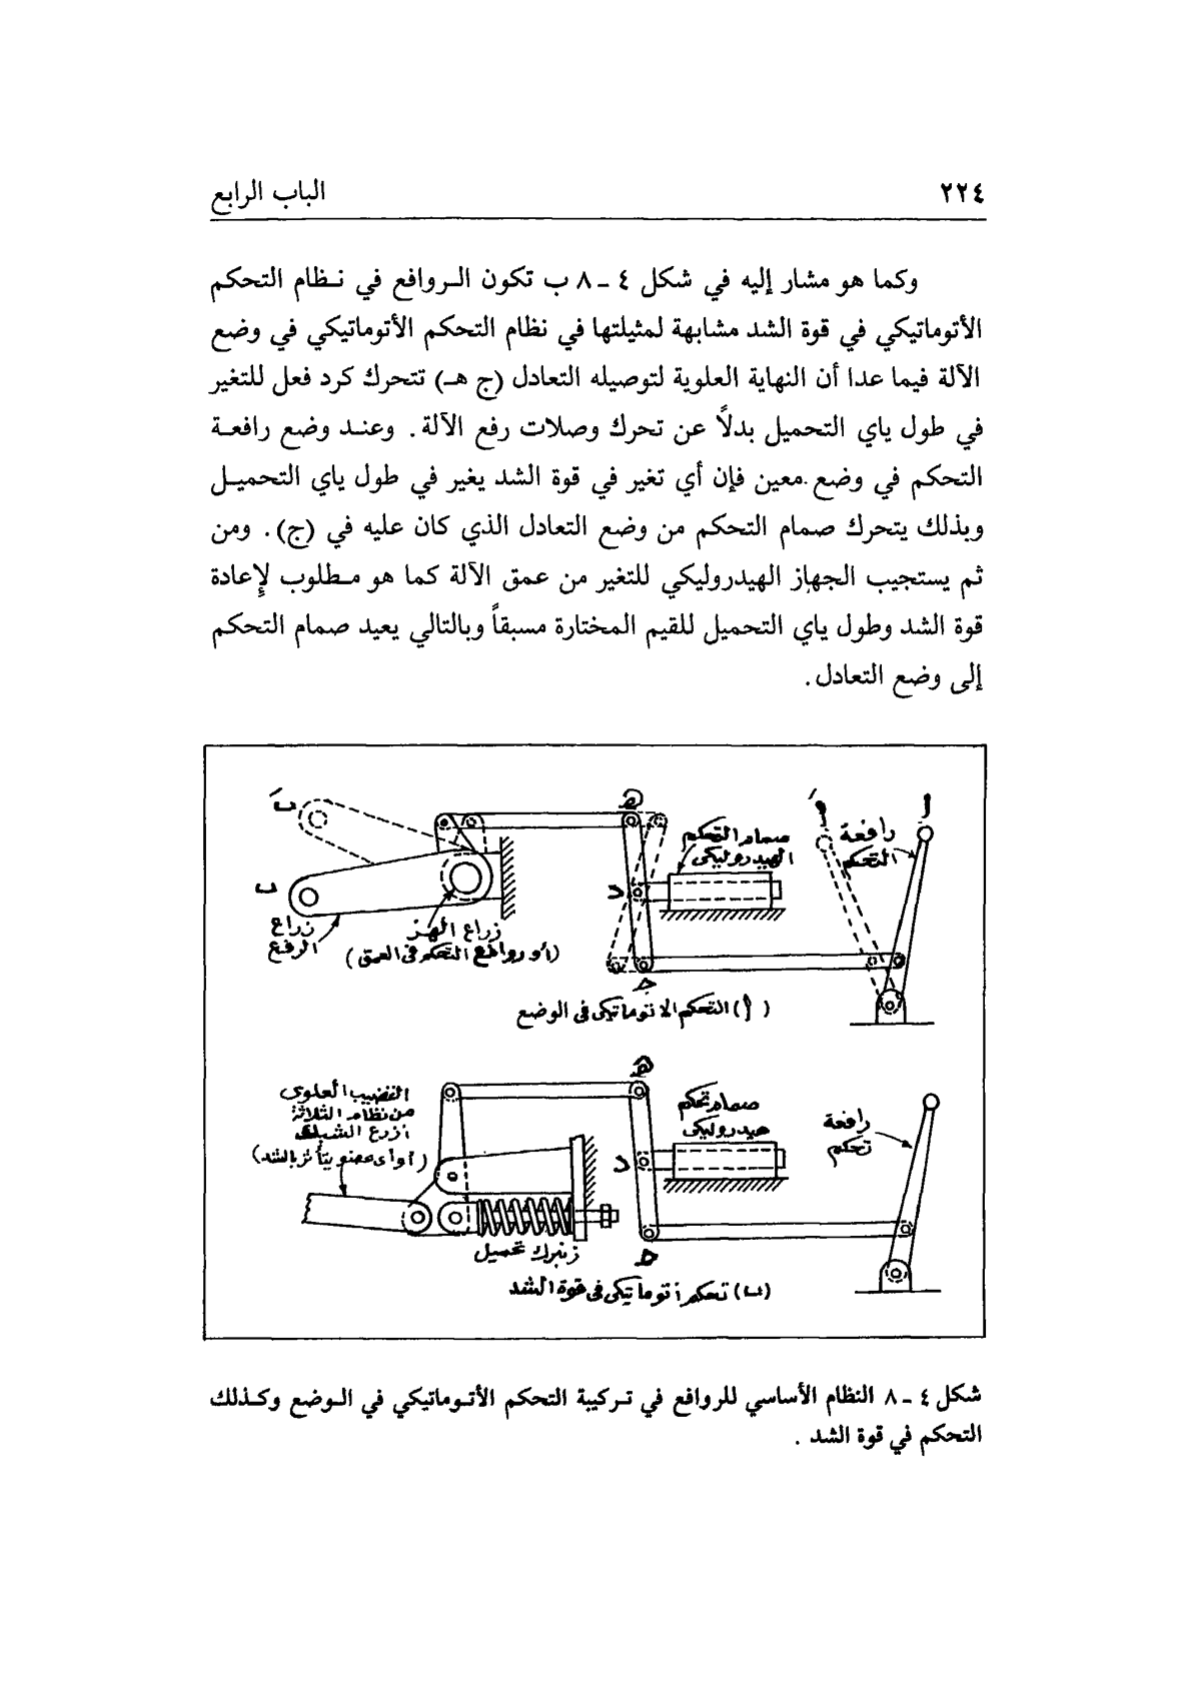 ٢٢٤
الباب الرابع
وكما هو مشار إليه في شكل ٤ ـ ٨ ب تكون الـروافع في نـظام التحكم
الأتوماتيكي في قوة الشد مشابهة لمثيلتها في نظام التحكم الأتوماتيكي في وضع
الآلة فيما عدا أن النهاية العلوية لتوصيله التعادل (ج هـ) تتحرك كرد فعل للتغير
في طول ياي التحميل بدلاً عن تحرك وصلات رفع الآلة. وعنـد وضع رافعـة
التحكم في وضع معين فإن أي تغير في قوة الشد يغير في طول ياي التحميـل
وبذلك يتحرك صمام التحكم من وضع التعادل الذي كان عليه في (ج). ومن
ثم يستجيب الجهاز الهيدروليكي للتغير من عمق الآلة كما هو مـطلوب لإعادة
قوة الشد وطول ياي التحميل للقيم المختارة مسبقاً وبالتالي يعيد صمام التحكم
إلى وضع التعادل.
أ
أَ
رافعة
التحكم
هـ
صمام التحكم
الهيدروليكى
د
بَ
ب
ذراع
الرفع
ذراع الهز
(أو روافع التحكم فى العمق)
جـ
(أ) التحكم الاتوماتيكى فى الوضع
هـ
صمام تحكم
هيدروليكى
رافعة
تحكم
د
القضيب العلوى
من نظام الثلاثة
أذرع الشبك
(أو أى عضو يتأثر بالشد)
زنبرك تحميل
جـ
(ب) تحكم أتوماتيكى فى قوة الشد
شكل ٤ ـ ٨ النظام الأساسي للروافع في تـركيبة التحكم الأتـوماتيكي في الـوضع وكـذلك
التحكم في قوة الشد .